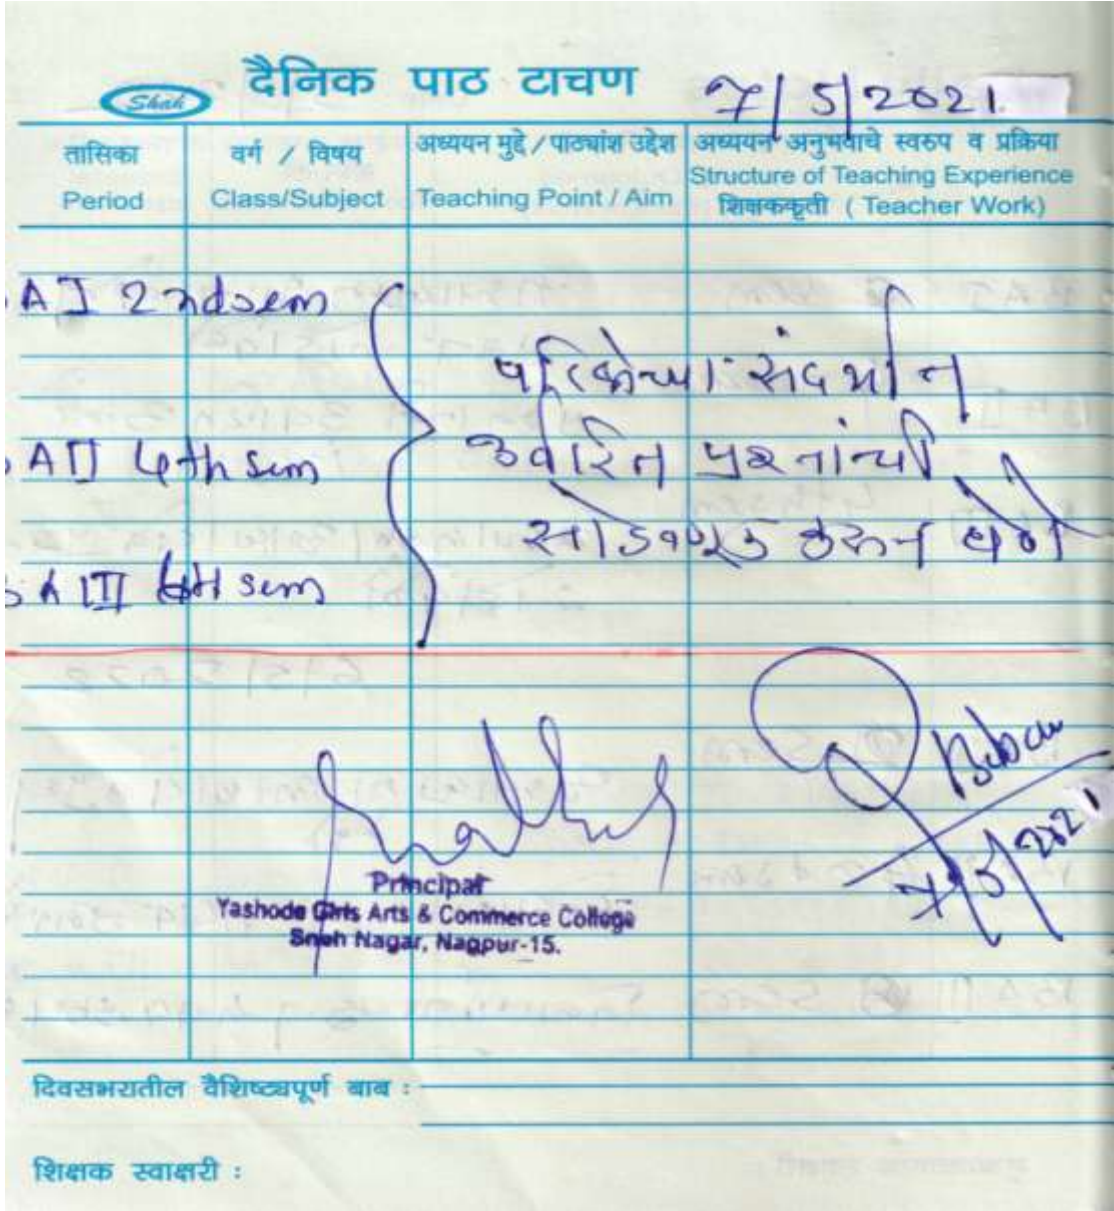 Shah
दैनिक पाठ टाचण
7/5/2021
तासिका
Period
वर्ग / विषय
Class/Subject
अध्ययन मुद्दे / पाठ्यांश उद्देश
Teaching Point / Aim
अध्ययन अनुभवाचे स्वरुप व प्रक्रिया
Structure of Teaching Experience
शिक्षककृती ( Teacher Work)
A I 2nd sem
A II 4th sem
A III 6th sem
संदर्भात
उर्वरित प्रश्नांची
सोडवणूक करून घेणे
Principal
Yashoda Girls Arts & Commerce College
Sneh Nagar, Nagpur-15.
7/5/2021
दिवसभरातील वैशिष्ट्यपूर्ण बाब :
शिक्षक स्वाक्षरी :